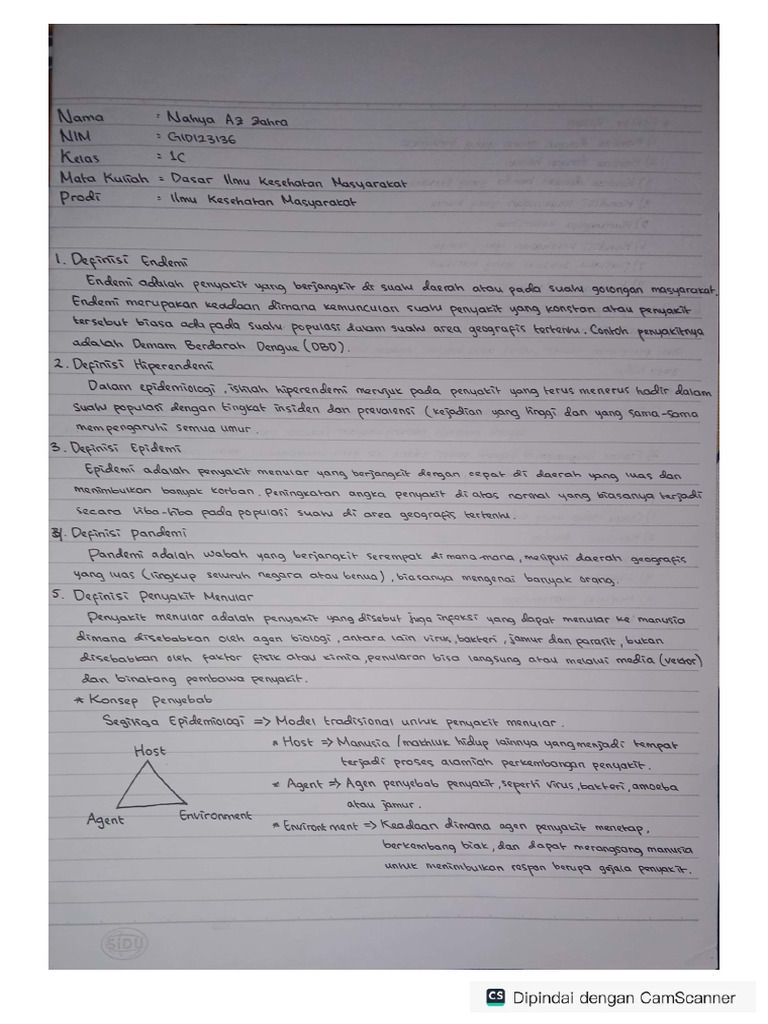 Nama : Nahya Az Zahra
NIM : G10123136
Kelas : 1C
Mata Kuliah : Dasar Ilmu Kesehatan Masyarakat
Prodi : Ilmu Kesehatan Masyarakat
1. Definisi Endemi
Endemi adalah penyakit yang berjangkit di suatu daerah atau pada suatu golongan masyarakat.
Endemi merupakan keadaan dimana kemunculan suatu penyakit yang konstan atau penyakit
tersebut biasa ada pada suatu populasi dalam suatu area geografis tertentu. Contoh penyakitnya
adalah Demam Berdarah Dengue (DBD).
2. Definisi Hiperendemi
Dalam epidemiologi, istilah hiperendemi merujuk pada penyakit yang terus menerus hadir dalam
suatu populasi dengan tingkat insiden dan prevalensi (kejadian yang tinggi dan yang sama-sama
mempengaruhi semua umur.
3. Definisi Epidemi
Epidemi adalah penyakit menular yang berjangkit dengan cepat di daerah yang luas dan
menimbulkan banyak korban. Peningkatan angka penyakit di atas normal yang biasanya terjadi
secara tiba-tiba pada populasi suatu di area geografis tertentu.
4. Definisi Pandemi
Pandemi adalah wabah yang berjangkit serempak di mana-mana, meliputi daerah geografis
yang luas (lingkup seluruh negara atau benua), biasanya mengenai banyak orang.
5. Definisi Penyakit Menular
Penyakit menular adalah penyakit yang disebut juga infeksi yang dapat menular ke manusia
dimana disebabkan oleh agen biologi, antara lain virus, bakteri, jamur dan parasit, bukan
disebabkan oleh faktor fisik atau kimia, penularan bisa langsung atau melalui media (vektor)
dan binatang pembawa penyakit.
* Konsep Penyebab
Segitiga Epidemiologi => Model tradisional untuk penyakit menular.
* Host => Manusia / makhluk hidup lainnya yang menjadi tempat
terjadi proses alamiah perkembangan penyakit.
* Agent => Agen penyebab penyakit, seperti virus, bakteri, amoeba
atau jamur.
* Environtment => Keadaan dimana agen penyakit menetap,
berkembang biak, dan dapat merangsang manusia
untuk menimbulkan respon berupa gejala penyakit.
Host
Agent
Environment
SIDU
CS Dipindai dengan CamScanner